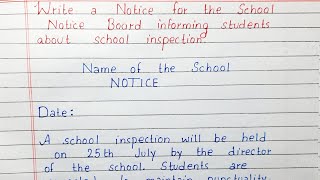 Write a Notice for the School
Notice Board informing students
about school inspection.
Name of the School
NOTICE
Date:
A school inspection will be held
on 25th July by the director
of the school. Students are
to maintain punctuality